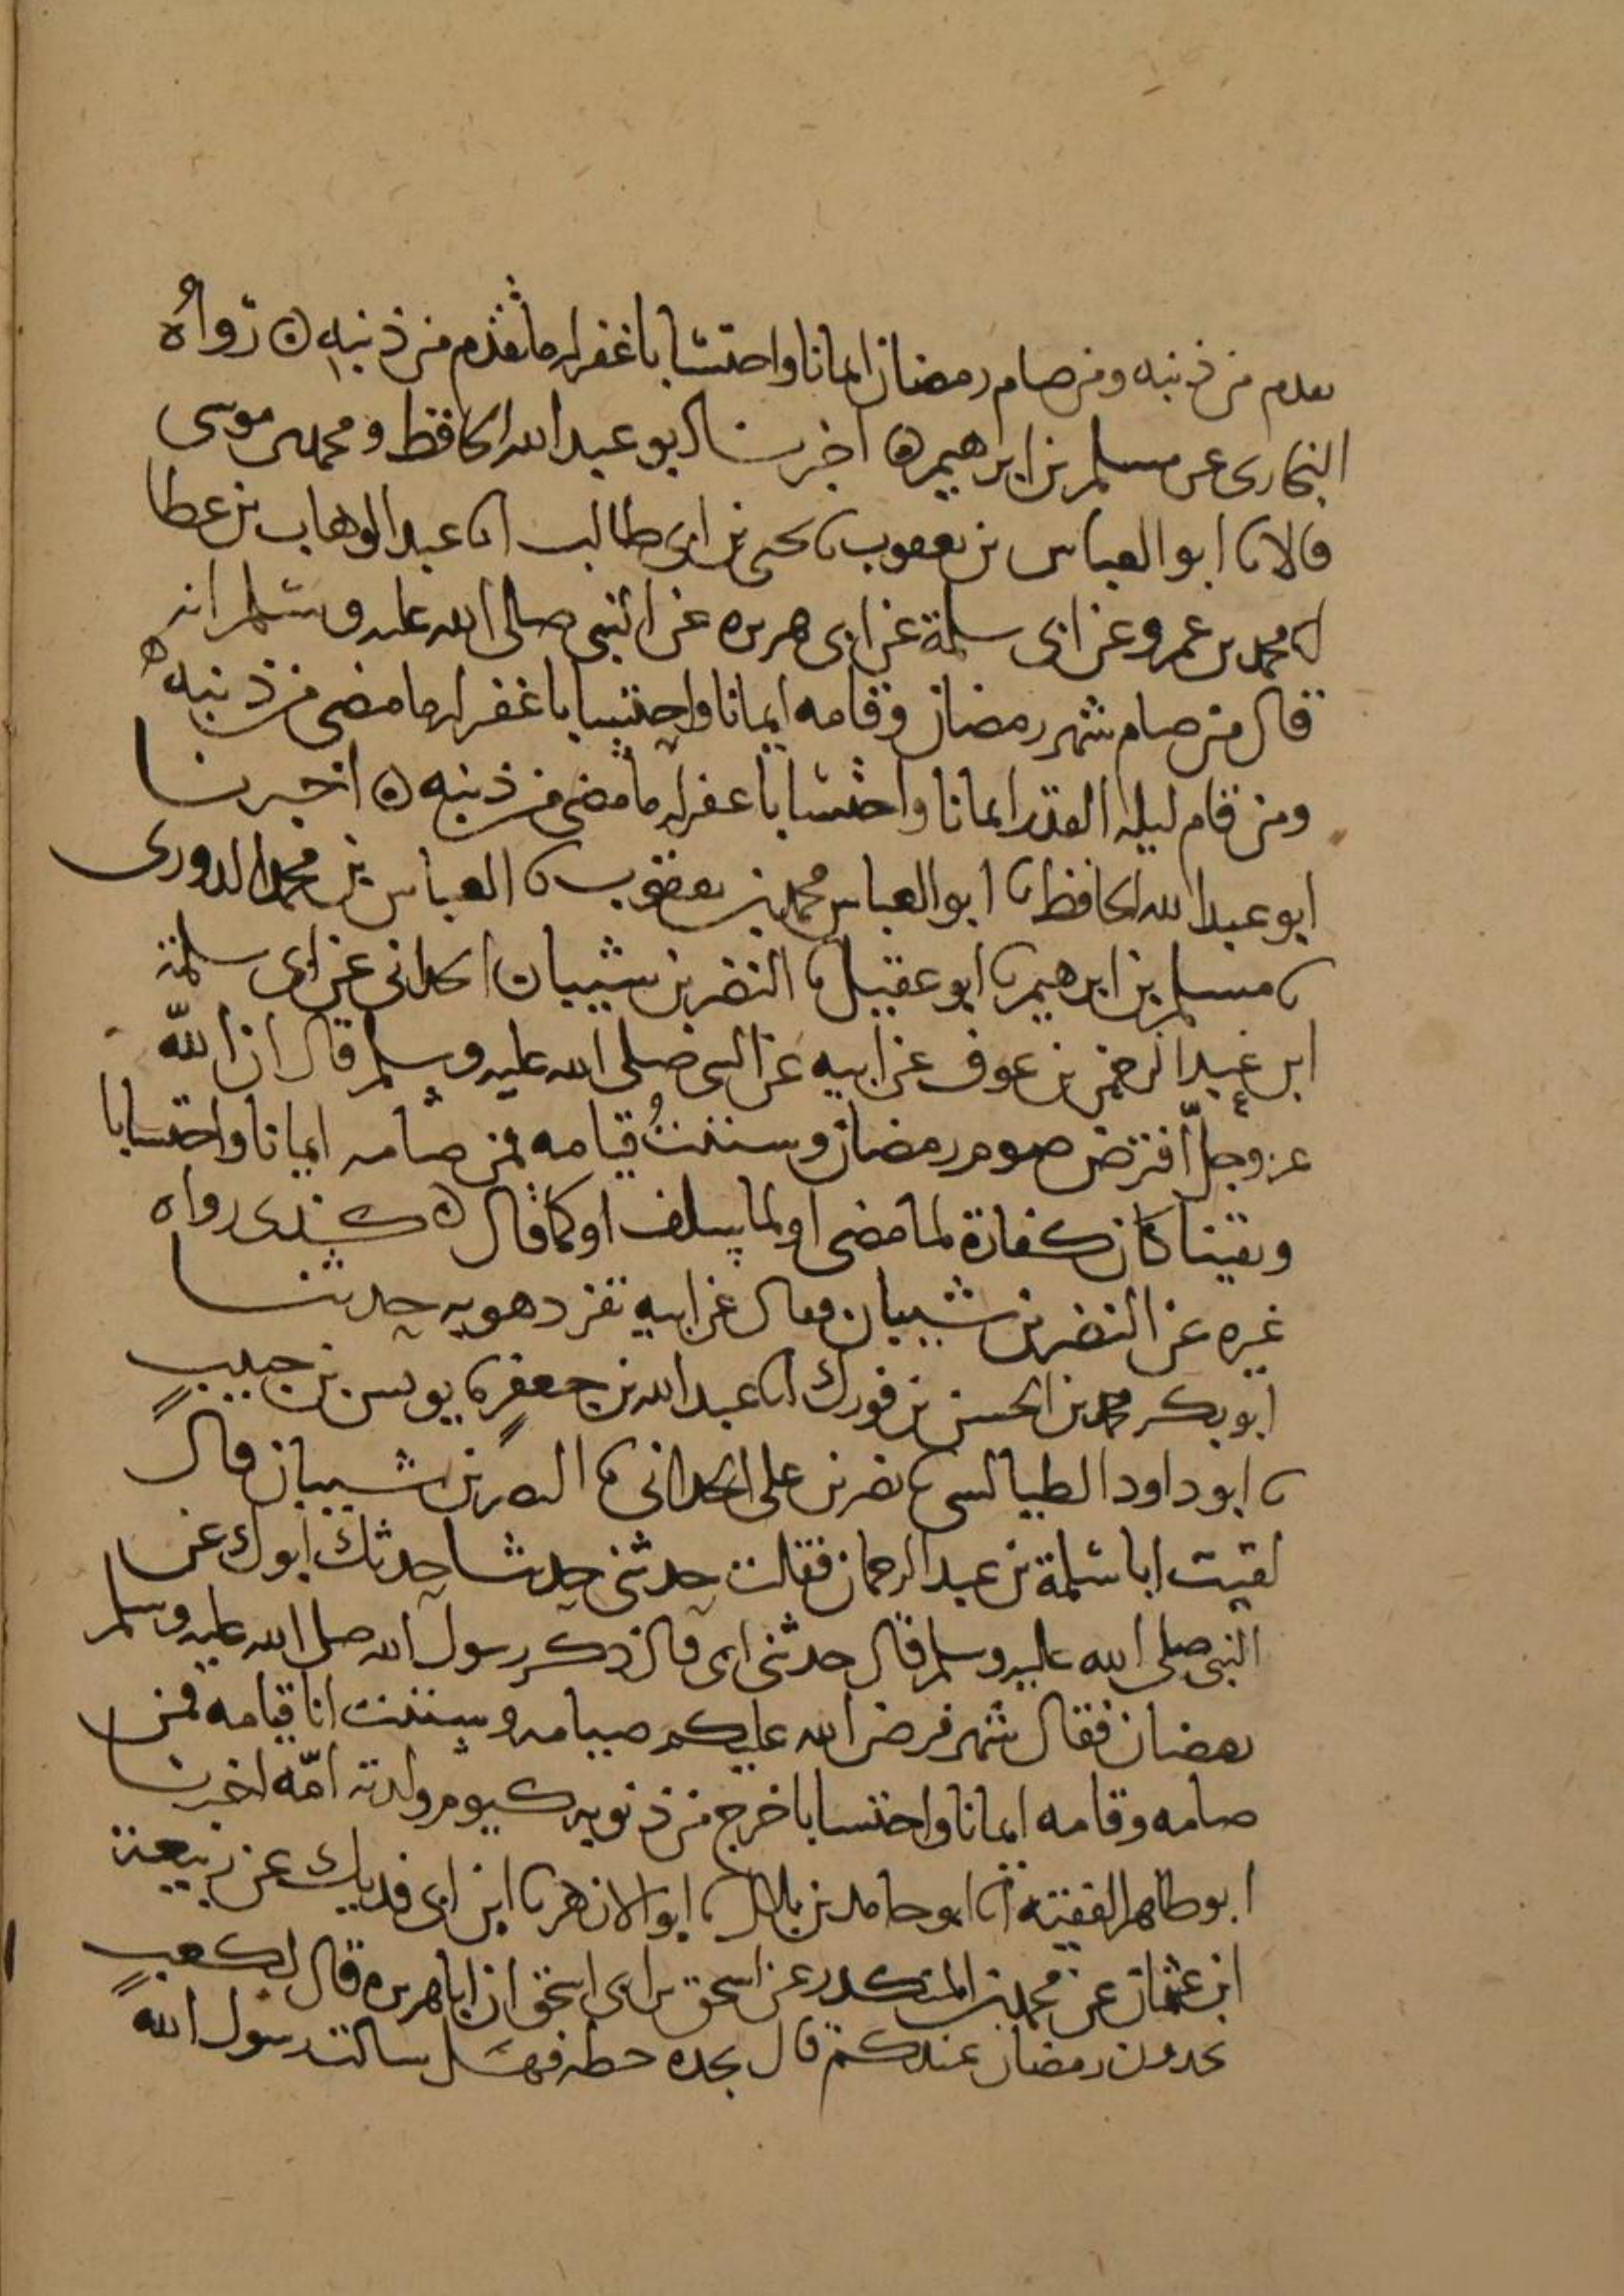 تقدم من ذنبه ومن صام رمضان ايمانا واحتسابا غفر له ما تقدم من ذنبه ه رواه
البخاري عن مسلم بن ابرهيم ه اخبرنا ابو عبد الله الحافظ ومحمد بن موسى
قالا نا ابو العباس بن يعقوب نا يحيى بن ابي طالب انا عبد الوهاب بن عطا
انا محمد بن عمرو عن ابي سلمة عن ابي هريره عن النبي صلى الله عليه وسلم انه
قال من صام شهر رمضان وقامه ايمانا واحتسابا غفر له ما مضى من ذنبه ه
ومن قام ليله القدر ايمانا واحتسابا غفر له ما مضى من ذنبه ه اخبرنا
ابو عبد الله الحافظ نا ابو العباس محمد بن يعقوب نا العباس بن محمد الدوري
نا مسلم بن ابرهيم نا ابو عقيل نا النضر بن شيبان الحداني عن ابي سلمة
ابن عبد الرحمن بن عوف عن ابيه عن النبي صلى الله عليه وسلم قال ان الله
عز وجل افترض صوم رمضان وسننت قيامه فمن صامه ايمانا واحتسابا
ويقينا كان كفارة لما مضى او لما سلف او كما قال ه كذى رواه
غيره عن النضر بن شيبان وقال عن ابيه تفرد هو به حدثنا
ابو بكر محمد بن الحسن بن فورك انا عبد الله بن جعفر نا يونس بن حبيب
نا ابو داود الطيالسي نا نصر بن علي الحداني نا النضر بن شيبان قال
لقيت ابا سلمة بن عبد الرحمان فقلت حدثني حديثا حدثك ابوك عن
النبي صلى الله عليه وسلم قال حدثني ابي قال ذكر رسول الله صلى الله عليه وسلم
رمضان فقال شهر فرض الله عليكم صيامه وسننت انا قيامه فمن
صامه وقامه ايمانا واحتسابا خرج من ذنوبه كيوم ولدته امّه اخبرنا
ابو طاهر الفقيه انا ابو حامد بن بلال نا ابو الازهر نا ابن ابي فديك عن ربيعة
ابن عثمان عن محمد بن المنكدر عن اسحق بن ابي اسحق ان ابا هريره قال لكعب
تجدون رمضان عندكم قال نجده حطه فهل سالت رسول الله